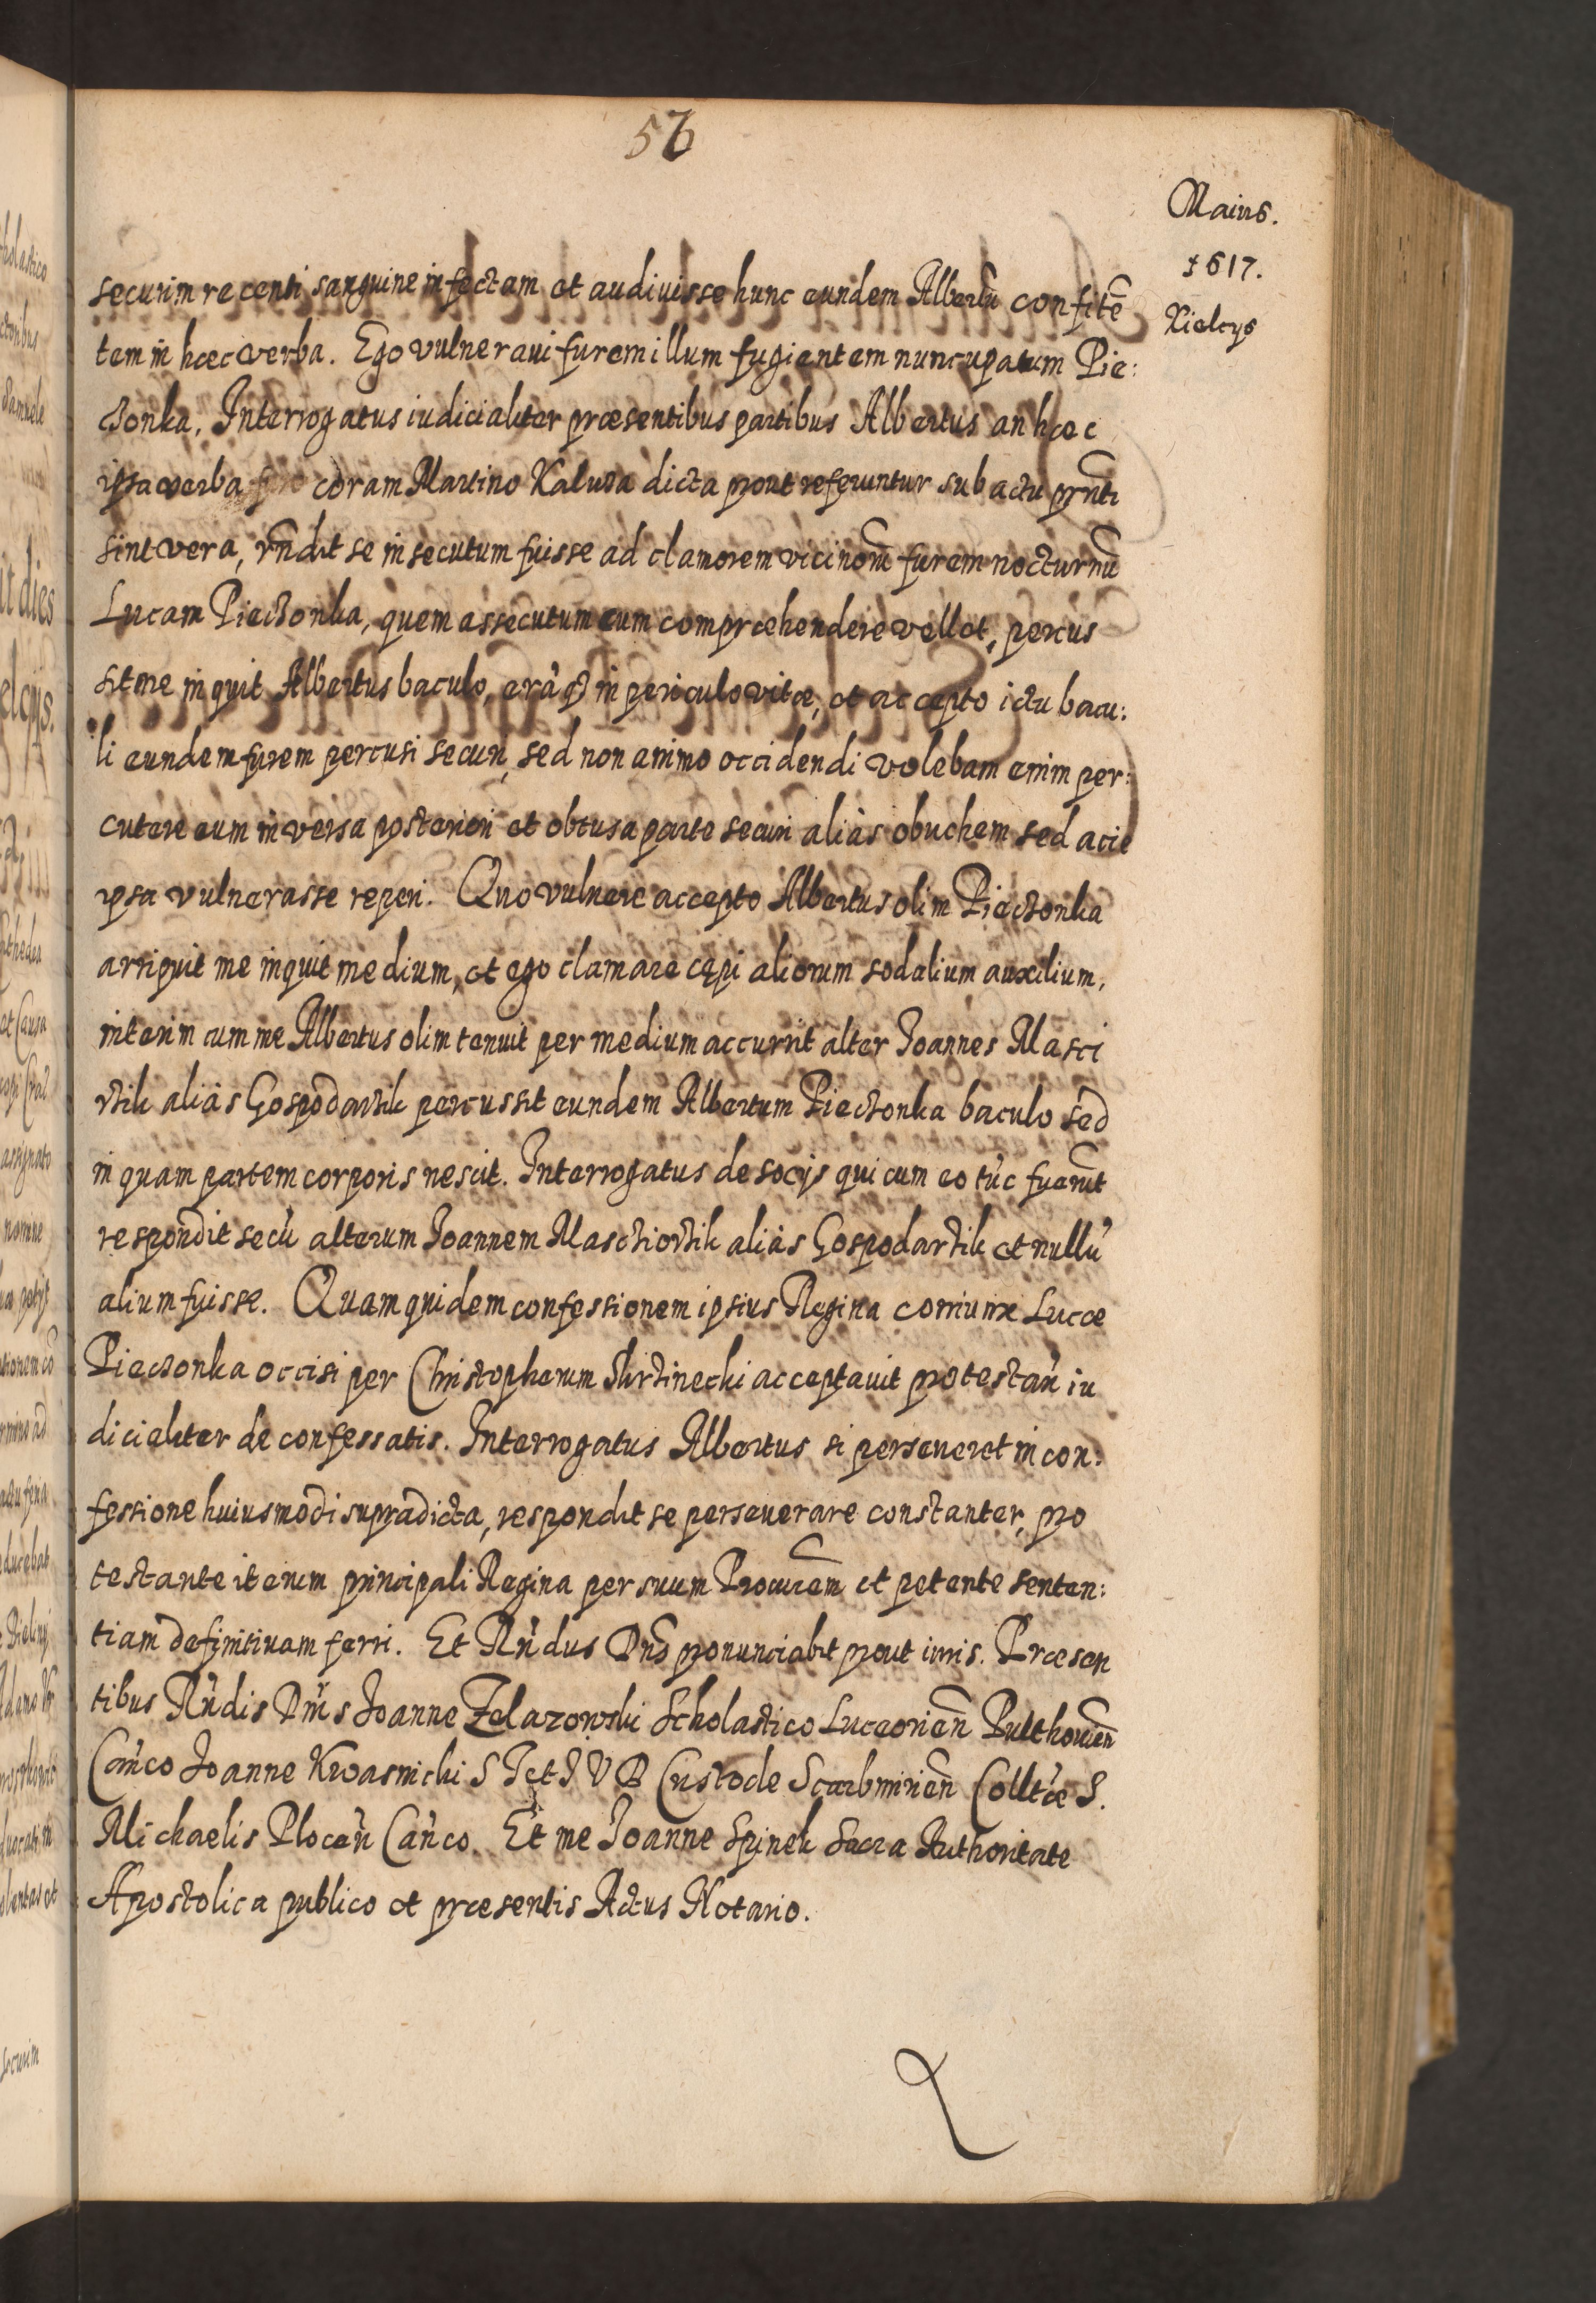 56
Maius.
1617.
Kielcys
securim recenti sanguine infectam et audiuisse hunc eundem Albertū confitē
tem in hæc verba. Ego vulneraui furem illum fugientem nuncupatum Pie:
czonka. Interrogatus iudicialiter præsentibus partibus Albertus an hæc
ipsa verba coram Martino Kaluza dicta prout referuntur sub actu prn̄ti
sint vera, rn̄dit se insecutum fuisse ad clamorem vicinorū furem nocturnū
Lucam Pieczonka, quem assecutum cum compræhendere vellet, percus
sit me inquit Albertus baculo, erāq3 in periculo vitæ, et accepto ictu bacu:
li eundem furem percusi securi, sed non animo occidendi volebam enim per:
cutere eum inversa posteriori et obtusa parte securi aliàs obuchem sed acie
ipsa vulnerasse reperi. Quo vulnere accepto Albertus olim Pieczonka
arripuit me inquit medium, et ego clamare cępi aliorum sodalium auxilium,
interim cum me Albertus olim tenuit per medium accurrit alter Joannes Masci
rtik aliàs Gospodartik percussit eundem Albertum Pieczonka baculo sed
in quam partem corporis nescit. Interrogatus de socijs qui cum eo tūc fuerūt
respondit secū alterum Joannem Masctiortik aliàs Gospodartik et nullū
alium fuisse. Quam quidem confessionem ipsius Regina coniunx Lucæ
Pieczonka occisi per Christopherum acceptauit protestan̄ iu
dicialiter de confessatis. Interrogatus Albertus si perseueret in con:
fessione huiusmodi supradicta, respondit se perseuerare constanter, pro
testante iterum principali Regina per suum Procurem̄ et petente senten:
tiam definitiuam ferri. Et Rn̄dus Dn̄s pronunciabit prout iuris. Præsen
tibus Rn̄dis Dn̄is Joanne Zelazowski Scholastico Luceorien̄ Pulthouien̄
Can̄co Joanne Kwasnicki S T et I V D Custode Scarbimirien̄ Collt̄æ S.
Michaelis Plocen̄ Can̄co. Et me Joanne Spinek Sacra Authoritate
Apostolica publico et præsentis Actus Notario.